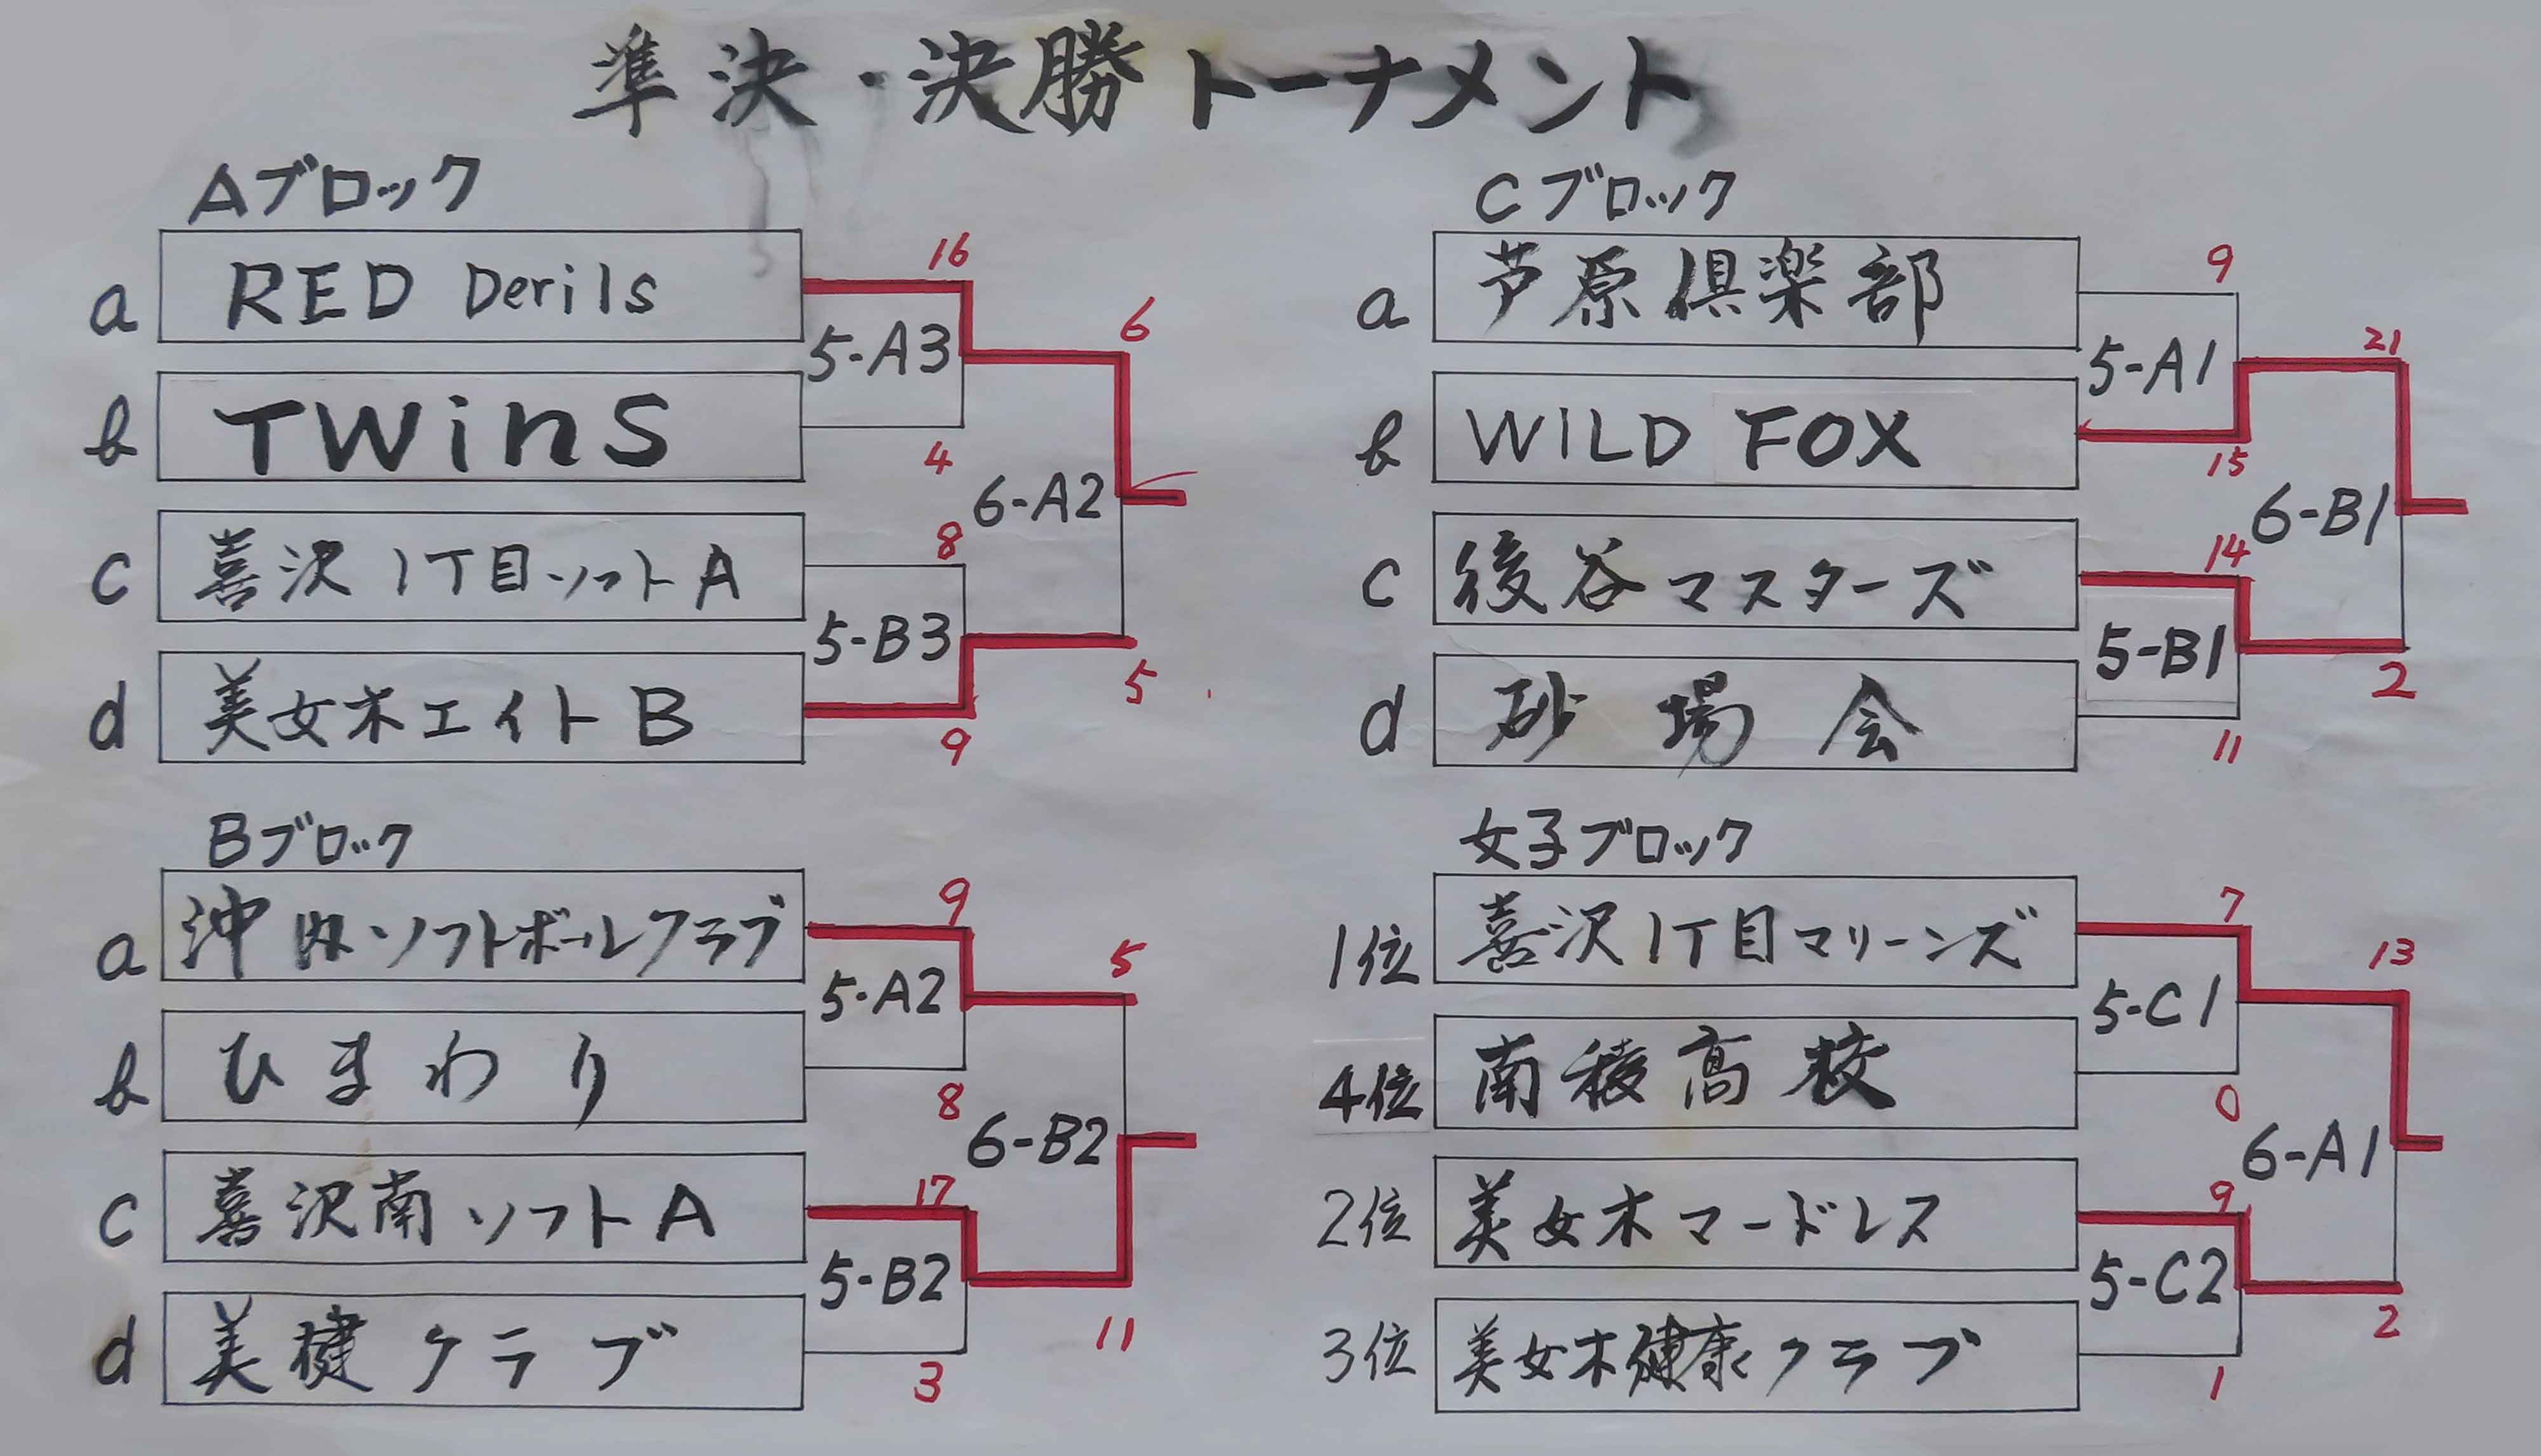 準決・決勝トーナメント
Aブロック
a RED Derils
b TWinS
c 喜沢1丁目ソフトA
d 美女木エイトB
16
5-A3
4
8
5-B3
9
6
6-A2
5
Bブロック
a 沖内ソフトボールクラブ
b ひまわり
c 喜沢南ソフトA
d 美健クラブ
9
5-A2
8
17
5-B2
3
5
6-B2
11
Cブロック
a 芦原倶楽部
b WILD FOX
c 後谷マスターズ
d 砂場会
9
5-A1
15
14
5-B1
11
21
6-B1
2
女子ブロック
1位 喜沢1丁目マリーンズ
4位 南稜高校
2位 美女木マードレス
3位 美女木健康クラブ
7
5-C1
0
9
5-C2
1
13
6-A1
2